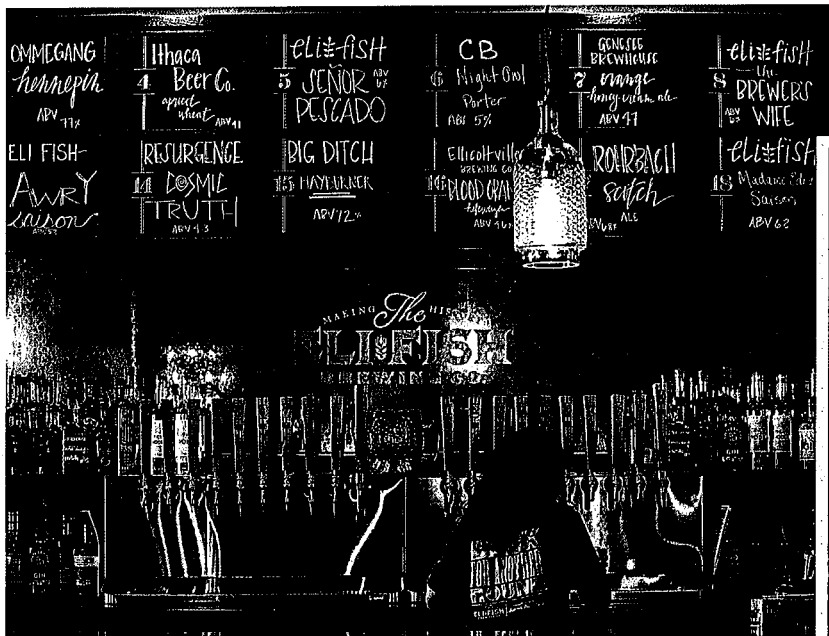 OMMEGANG
hennepin
ABV
4
Ithaca
Beer Co.
apricot
wheat
5
eli fish
SEÑOR
PESCADO
ABV
6
CB
Night Owl
Porter
ABV 5%
7
GENESEE
BREWHOUSE
orange
honey cream ale
ABV 47
8
eli fish
the
BREWER'S
WIFE
ABV
ELI FISH
AWRY
saison
14
RESURGENCE
COSMIC
TRUTH
ABV 4.3
15
BIG DITCH
HAYBURNER
ABV 7.2%
16
Ellicottville
BREWING CO
BLOOD ORAN
ABV
ROHRBACH
scotch
ALE
18
eli fish
Saison
ABV 62
MAKING The HIS
ELI FISH
BREWING CO.